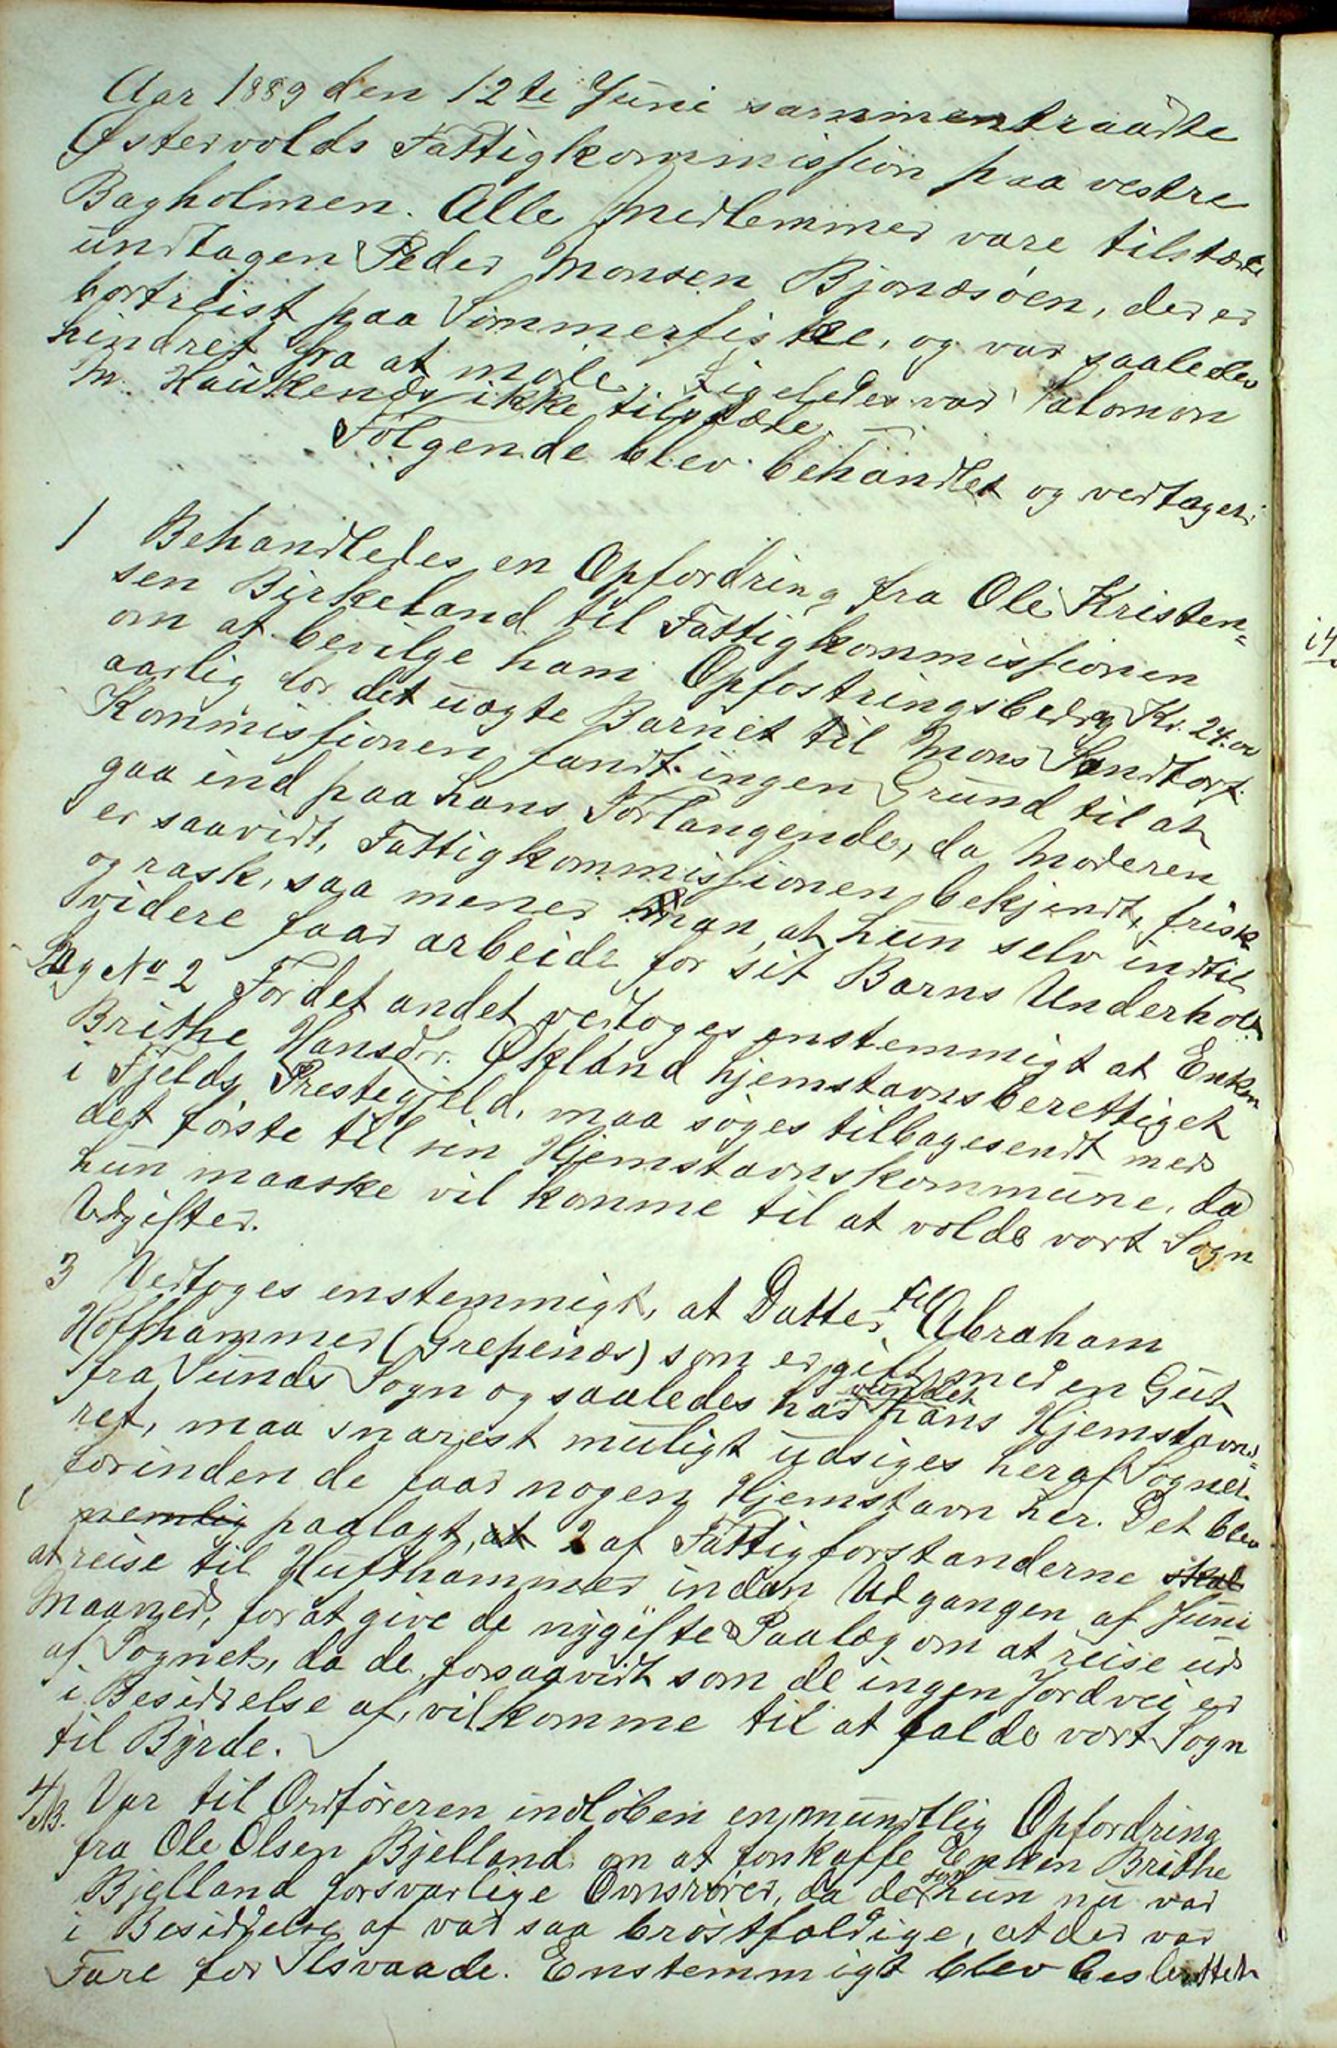 Aar 1889 den 12te Juni sammentraadte
Østervolds Fattigkommission paa vestre
Bagholmen. Alle Medlemmer vare tilstæde
undtagen Peder Monsen Bjønæsøen, der er
bortreist paa Sommerfiske, og var saaledes
hindret fra at møde. Ligeledes var Salomon
M. Haukenæs ikke tilstæde.
Følgende blev behandlet og vedtaget:
1 Behandledes en Opfordring fra Ole Kristen=
sen Birkeland til Fattigkommissionen
om at bevilge ham Opfostringsbedrag Kr. 24.00
aarlig for det uægte Barnet til Mons Sandtorf.
Kommissionen fandt ingen Grund til at
gaa ind paa hans Forlangende, da Moderen
er saavidt, Fattigkommissionen bekjendt, frisk
og rask, saa mener man, at hun selv indtil
videre faar arbeide for sit Barns Underhold.
Sag No 2 For det andet vedtoges enstemmigt at Enken
Brithe Hansdr. Økland hjemstavnsberettiget
i Fjelds Prestegjeld, maa søges tilbagesendt med
det første til sin Hjemstavnskommune, da
hun maaske vil komme til at volde vort Sogn
Udgifter.
3 Vedtoges enstemmigt, at Datter til Abraham
Hoffhammer (Grepenæs) som er gift med en Gut
fra Sunds Sogn og saaledes har vundet hans Hjemstavns=
ret, maa snarest muligt udsiges heraf Sognet
forinden de faar nogen Hjemstavn her. Det blev
nemlig paalagt, at 2 af Fattigforstanderne skal
at reise til Hufthammer inden Udgangen af Juni
Maaned, for at give de nygifte Paalæg om at reise ud
af Sognet, da de, forsaavidt som de ingen Jordvei er
i Besiddelse af, vil komme til at falde vort Sogn
til Byrde.
4/NB. Var til Ordføreren indløben en mundtlig Opfordring
fra Ole Olsen Bjelland om at forskaffe Enken Brithe
Bjelland forsvarlige Ovnsrører, da de som hun nu var
i Besiddelse af var saa brøstfældige, at der var
Fare for Ilsvaade. Enstemmigt blev besluttet